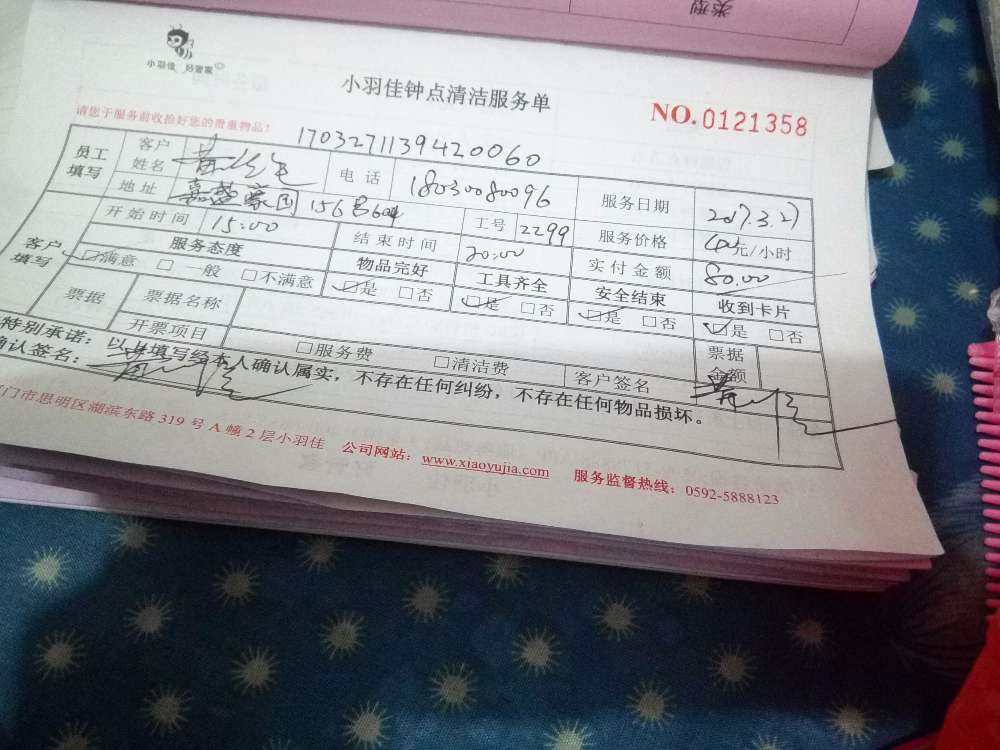 类型
小羽佳 好管家
小羽佳钟点清洁服务单
NO.0121358
请您于服务前收拾好您的贵重物品！
17032711394 20060
员工填写 客户姓名 电话 18030080096 服务日期 2017.3.27
地址 嘉盛豪园 156号604 工号 2299 服务价格 40元/小时
客户填写 开始时间 15:00 结束时间 20:00 实付金额 80.00
服务态度 物品完好 工具齐全 安全结束 收到卡片
☑满意 □一般 □不满意 ☑是 □否 ☑是 □否 ☑是 □否 ☑是 □否
票据 票据名称 票据金额
开票项目 □服务费 □清洁费 客户签名
特别承诺：以上填写经本人确认属实，不存在任何纠纷，不存在任何物品损坏。
确认签名：
门市思明区湖滨东路 319 号 A 幢 2 层小羽佳 公司网站：www.xiaoyujia.com 服务监督热线：0592-5888123